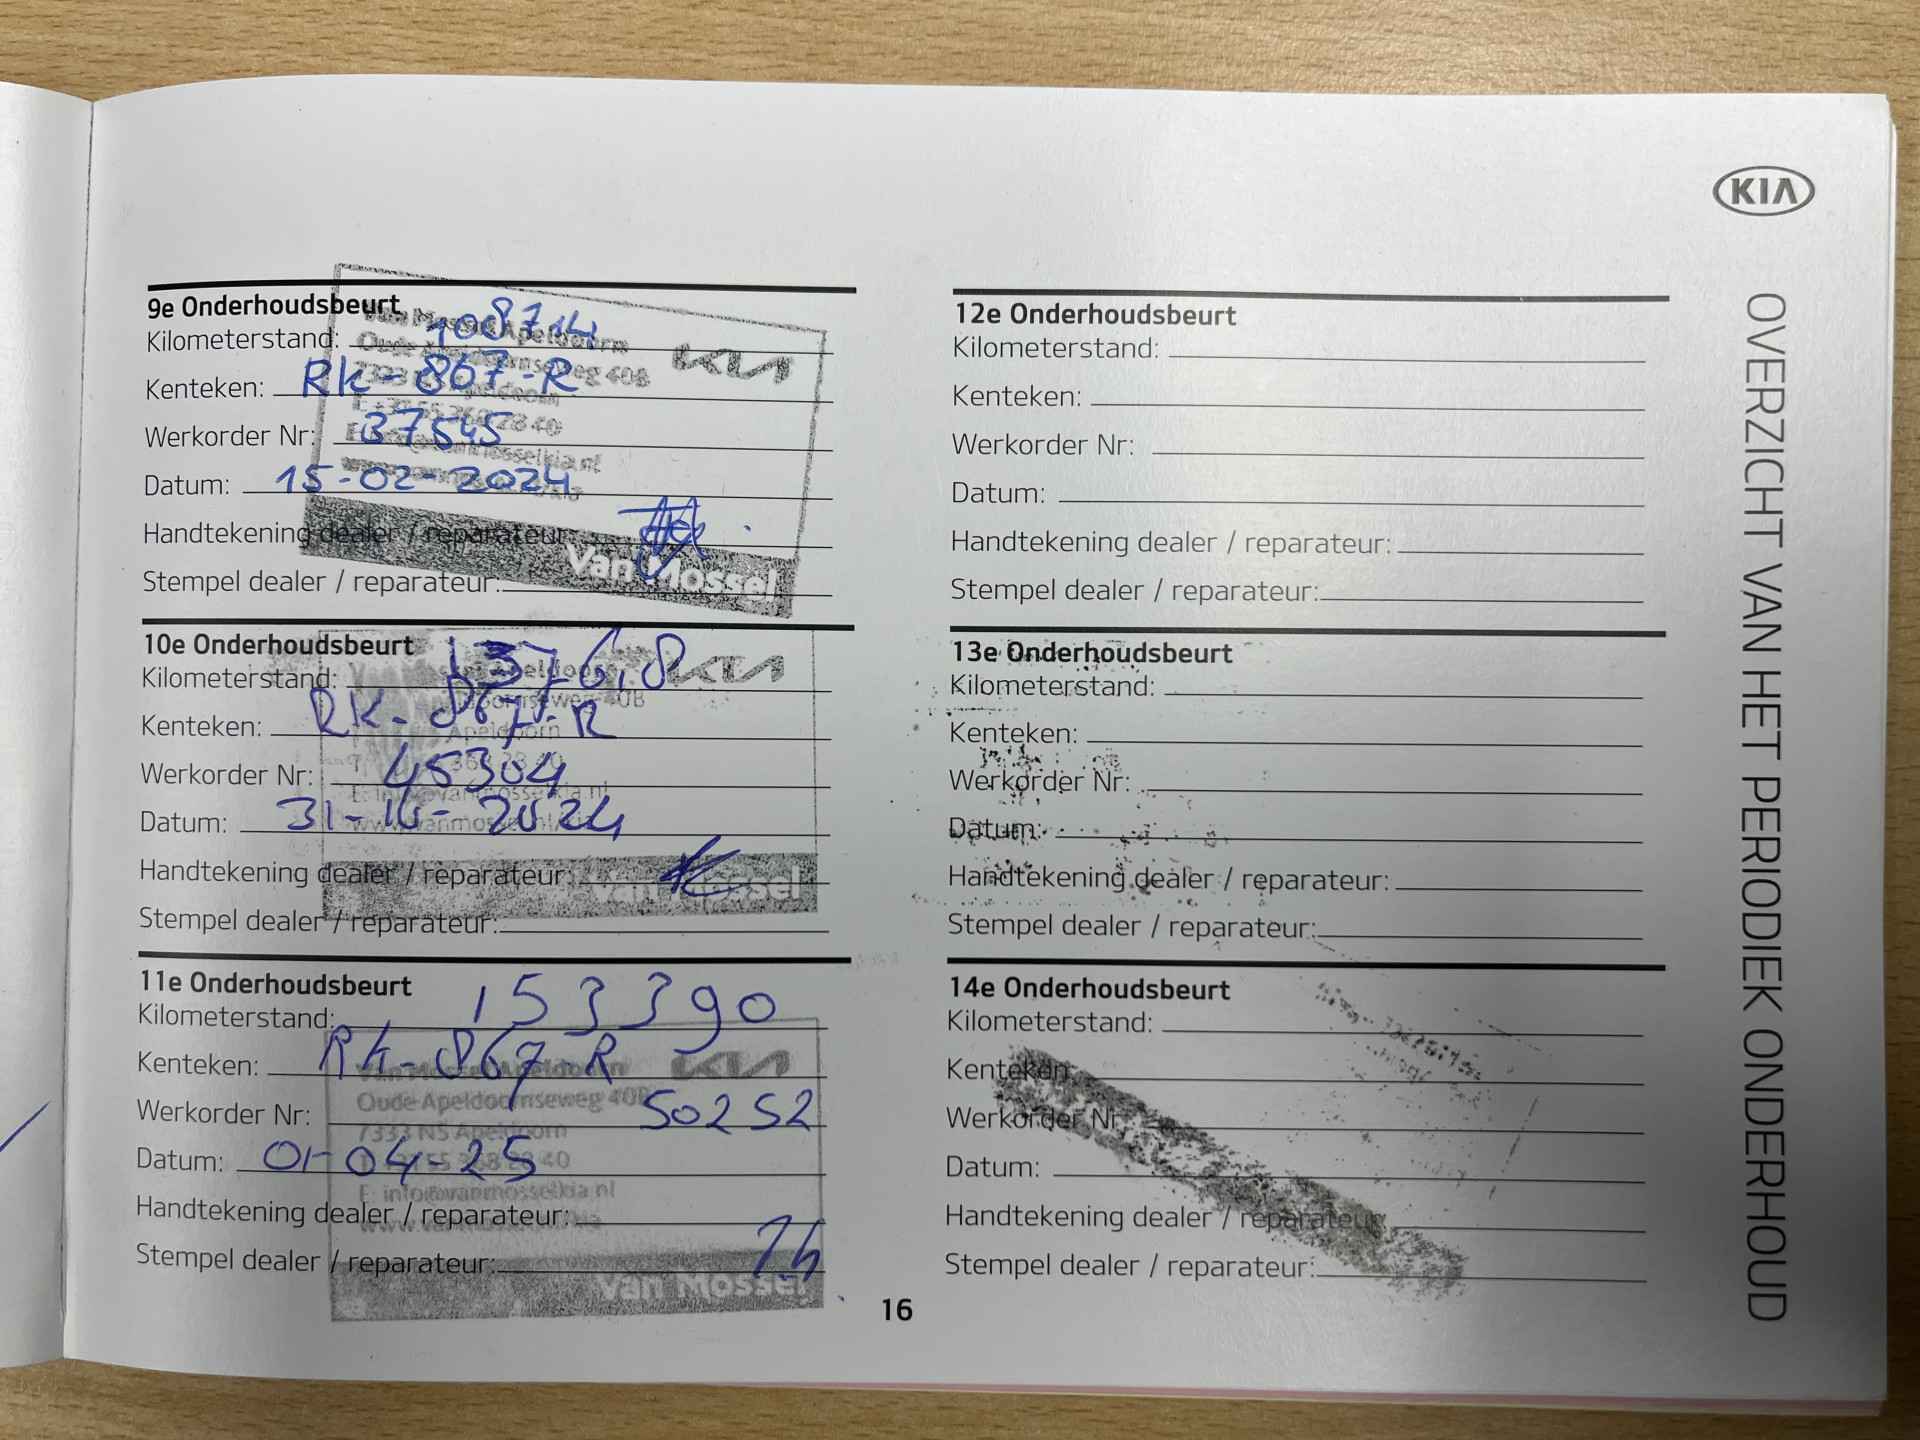 KIA
OVERZICHT VAN HET PERIODIEK ONDERHOUD
9e Onderhoudsbeurt
Kilometerstand: 108714
Kenteken: RK-867-R
Werkorder Nr: 37545
Datum: 15-02-2024
Handtekening dealer / reparateur:
Stempel dealer / reparateur:
Van Mossel Apeldoorn
KIA
Van Mossel
10e Onderhoudsbeurt
Kilometerstand:
Kenteken: RK-867-R
Werkorder Nr: 45304
Datum: 31-10-2024
Handtekening dealer / reparateur:
Stempel dealer / reparateur:
Van Mossel Apeldoorn
KIA
E: info@vanmosselkia.nl
Van Mossel
11e Onderhoudsbeurt
Kilometerstand: 153390
Kenteken: RK-867-R
Werkorder Nr: 50252
Datum: 01-04-25
Handtekening dealer / reparateur:
Stempel dealer / reparateur:
Van Mossel Apeldoorn
KIA
Oude Apeldoornseweg 40B
7333 NS Apeldoorn
E: info@vanmosselkia.nl
Van Mossel
12e Onderhoudsbeurt
Kilometerstand:
Kenteken:
Werkorder Nr:
Datum:
Handtekening dealer / reparateur:
Stempel dealer / reparateur:
13e Onderhoudsbeurt
Kilometerstand:
Kenteken:
Werkorder Nr:
Datum:
Handtekening dealer / reparateur:
Stempel dealer / reparateur:
14e Onderhoudsbeurt
Kilometerstand:
Kenteken:
Werkorder Nr:
Datum:
Handtekening dealer / reparateur:
Stempel dealer / reparateur:
16